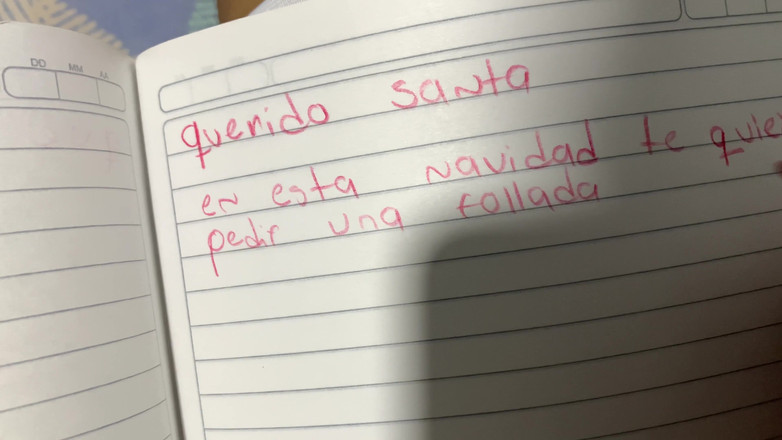 DD MM AA
querido santa
en esta navidad te quie
pedir una follada